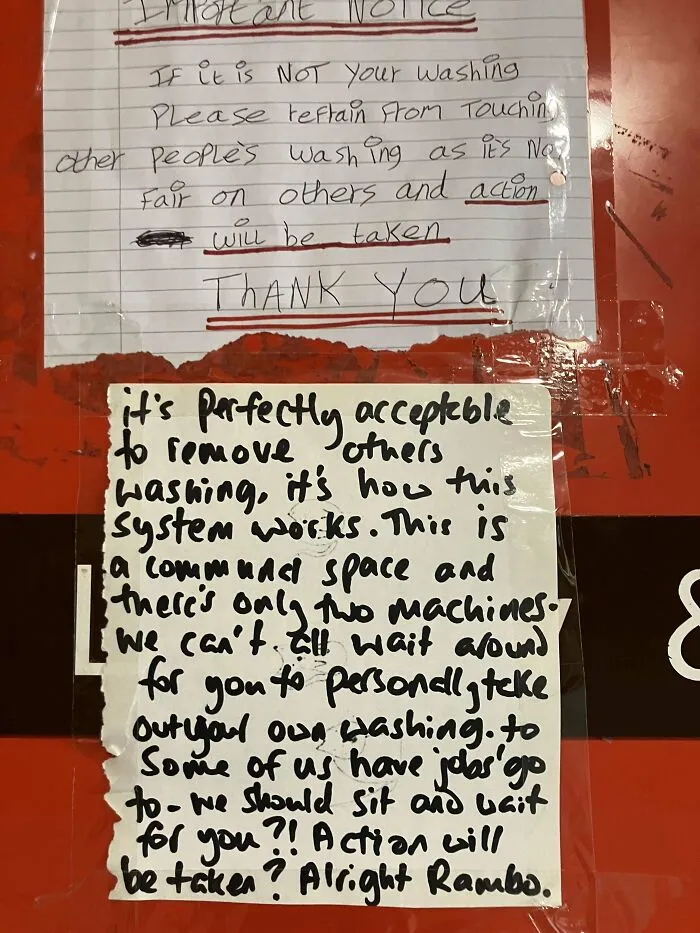 Important Notice
If it is NOT Your Washing
Please refrain from Touching
other People's washing as it's No
Fair on others and action
will be taken
THANK YOU
it's perfectly acceptable
to remove others
washing, it's how this
system works. This is
a communal space and
there's only two machines.
we can't all wait around
for you to personally take
out your own washing. to
Some of us have jobs go
to - we should sit and wait
for you?! Action will
be taken? Alright Rambo.
L y &